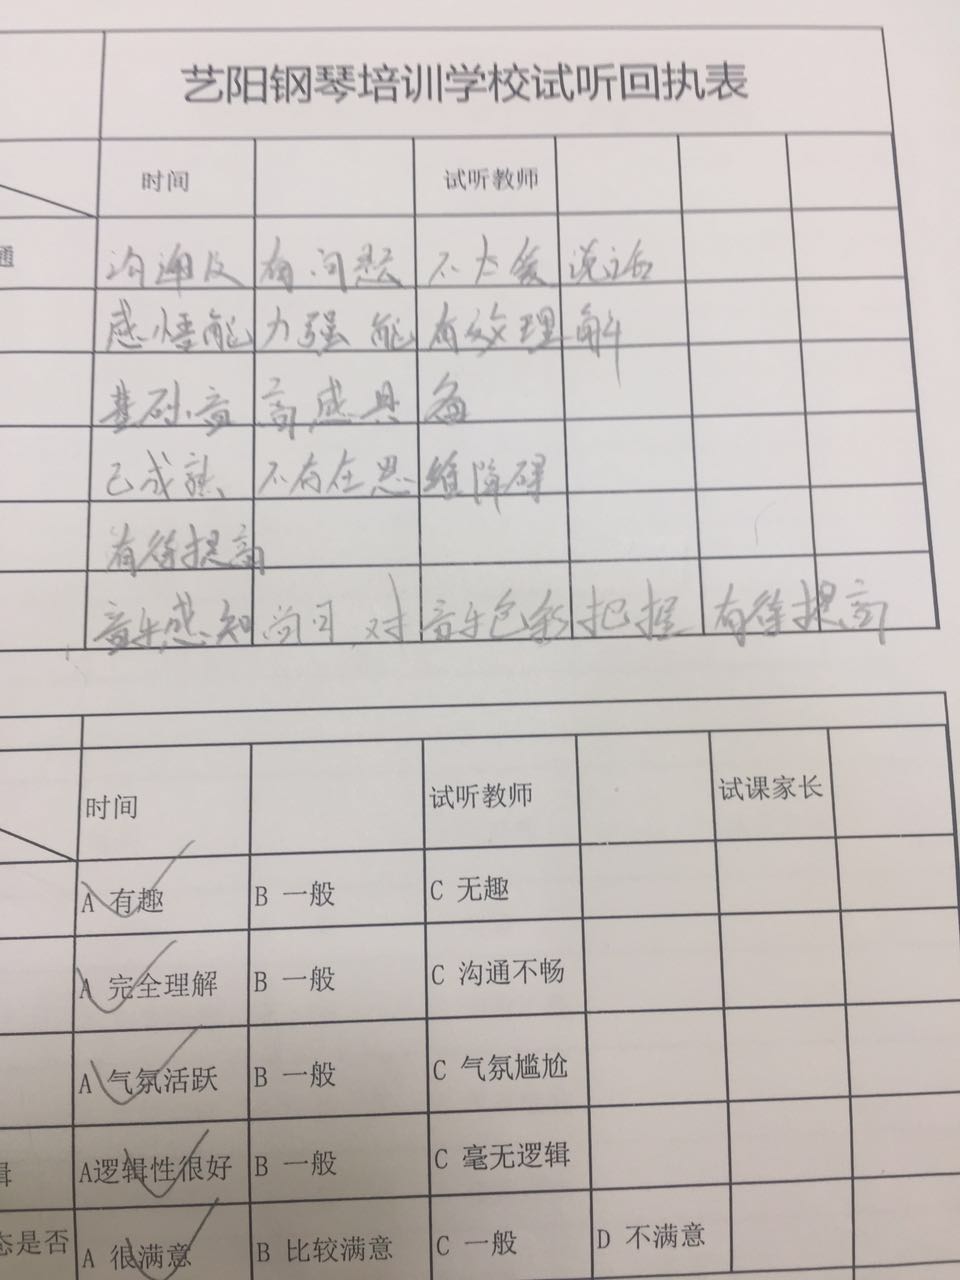 艺阳钢琴培训学校试听回执表
时间 试听教师
通 沟通没有问题 不太爱说话
感悟能力强 能有效理解
基础音高感具备
已成熟、不存在思维障碍
有待提高
音乐感知尚可,对音乐色彩把握有待提高
时间 试听教师 试课家长
A 有趣 B 一般 C 无趣
A 完全理解 B 一般 C 沟通不畅
A 气氛活跃 B 一般 C 气氛尴尬
辑 A逻辑性很好 B 一般 C 毫无逻辑
态是否 A 很满意 B 比较满意 C 一般 D 不满意